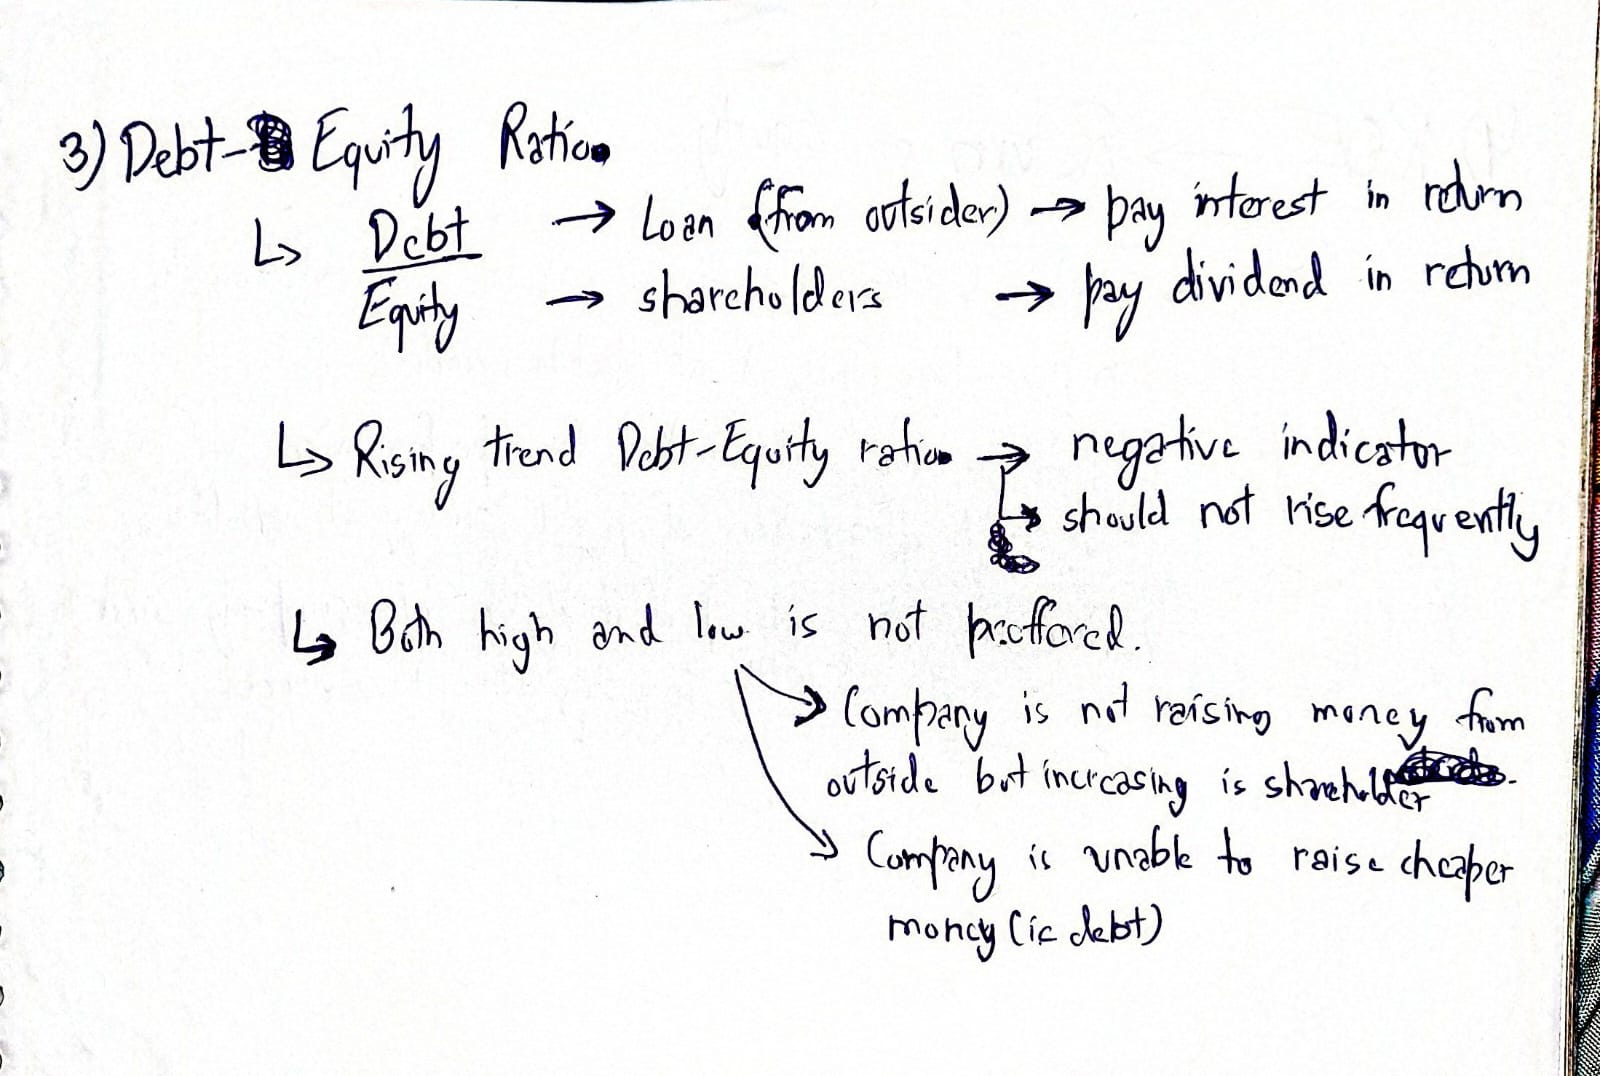 3) Debt- Equity Ratio
↳ Debt → Loan (from outsider) → pay interest in return
Equity → shareholders → pay dividend in return
↳ Rising trend Debt-Equity ratio → negative indicator
↳ should not rise frequently
↳ Both high and low is not preffered.
→ Company is not raising money from
outside but increasing is shareholder
→ Company is unable to raise cheaper
money (ie debt)